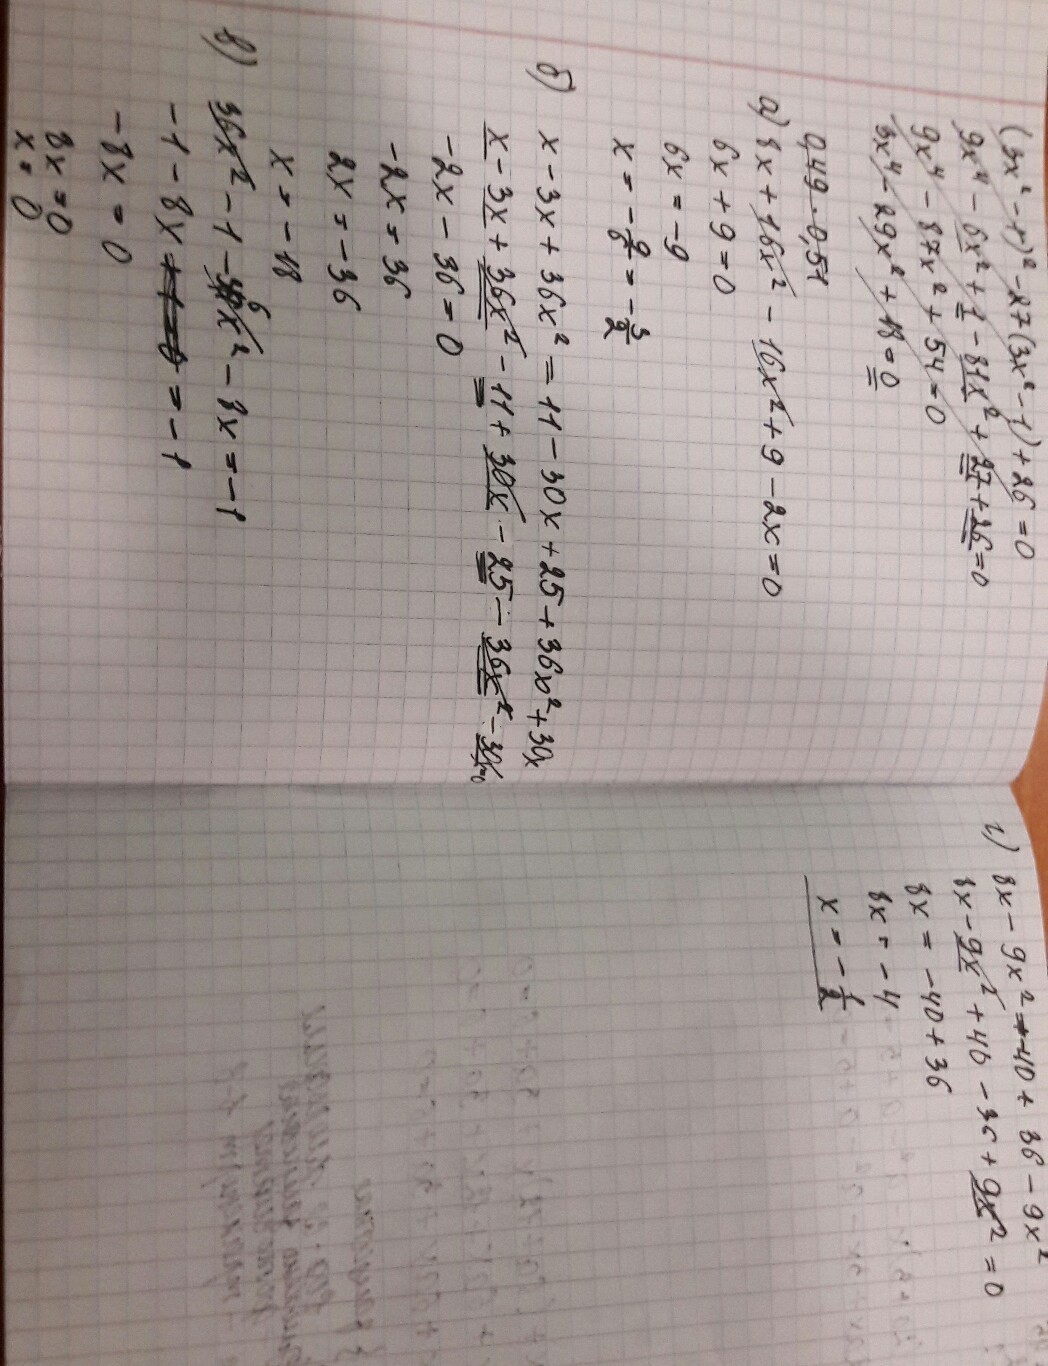 (3x² - 1)² - 27(3x² - 1) + 26 = 0
9x⁴ - 6x² + 1 - 81x² + 27 + 26 = 0
9x⁴ - 87x² + 54 = 0
3x⁴ - 29x² + 18 = 0
0,49 - 0,51
а) 8x + 16x² - 16x² + 9 - 2x = 0
6x + 9 = 0
6x = -9
x = -9/6 = -3/2
б) x - 3x + 36x² = 11 - 30x + 25 + 36x² + 30x
x - 3x + 36x² - 11 + 30x - 25 - 36x² - 30x = 0
-2x - 36 = 0
-2x = 36
2x = -36
x = -18
в) 36x² - 1 - 36x² - 8x = -1
-1 - 8x = -1
-8x = 0
8x = 0
x = 0
г) 8x - 9x² = -40 + 36 - 9x²
8x - 9x² + 40 - 36 + 9x² = 0
8x = -40 + 36
8x = -4
x = -1/2